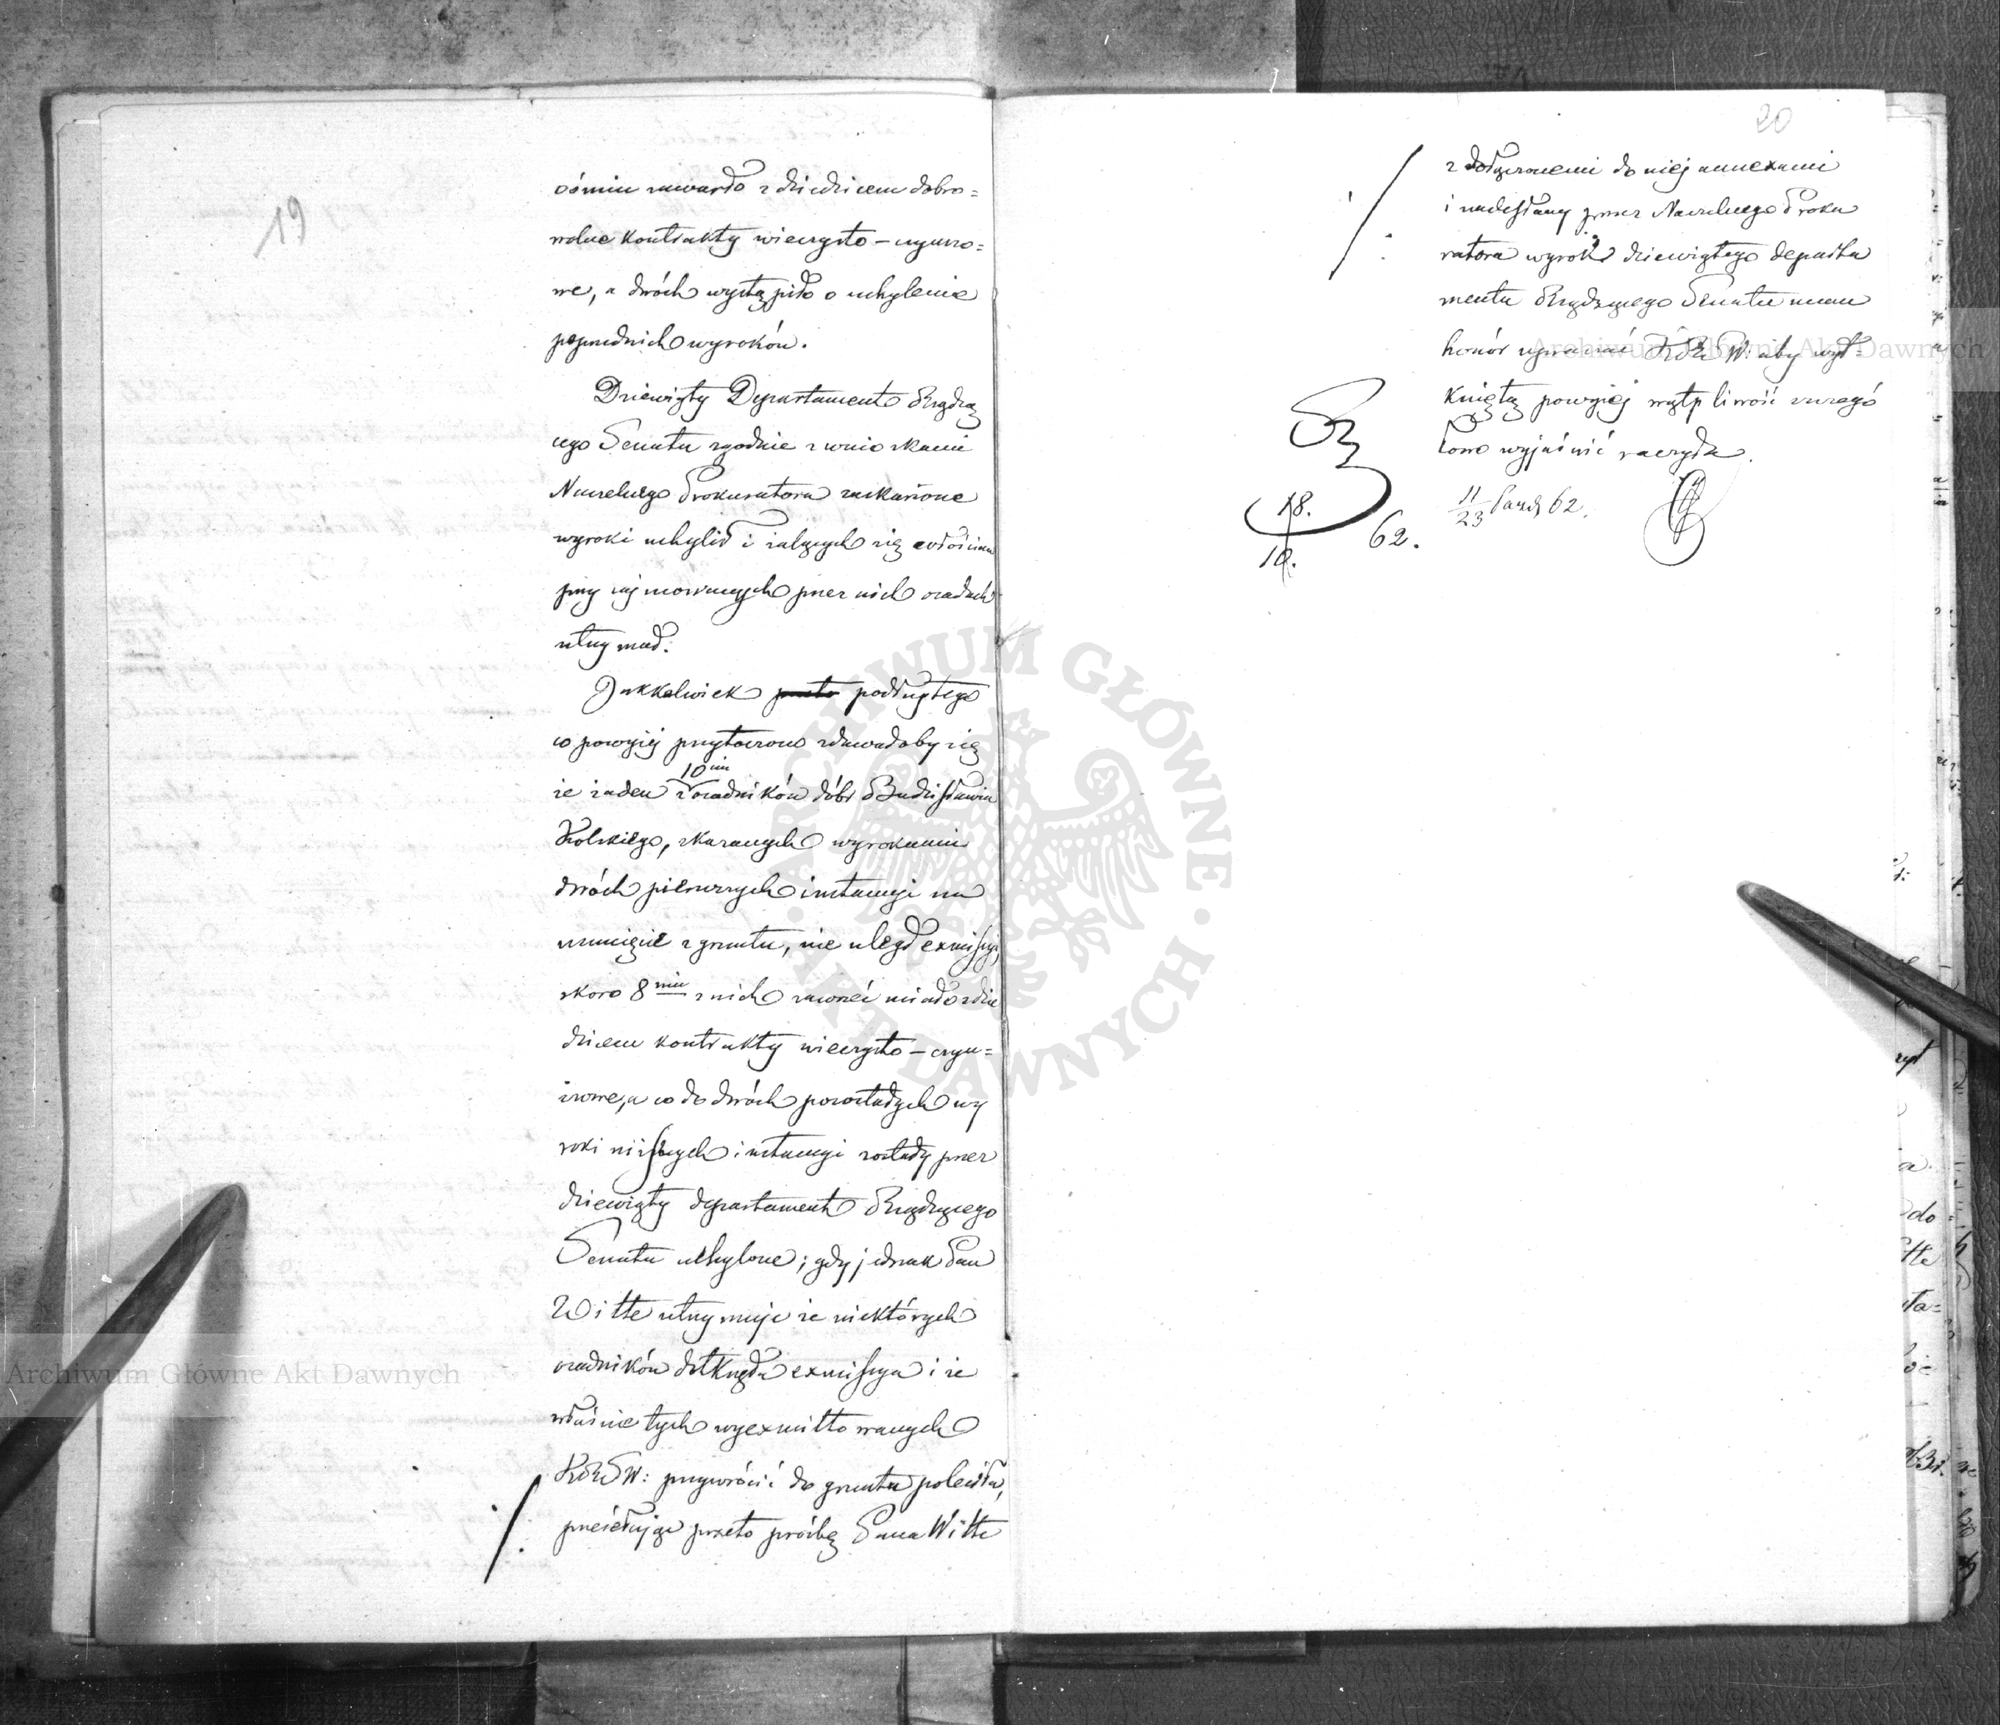 19
ośmiu zawarło z dziedzicem dobro=
wolne kontrakty wieczysto-czynszo=
we, a dwóch wystąpiło o uchylenie
poprzednich wyroków.
Dziewiąty Departament Rządzą
cego Senatu zgodnie z wnioskami
Naczelnego Prokuratora zaskarżone
wyroki uchylił i żalących się włościan
przy zajmowanych przez nich osadach
utrzymał.
Jakkolwiek przeto podług tego
co powyżej przytoczono zdawałoby się
że żaden z 10ciu osadników dóbr Budzisławia
Kolskiego, skazanych wyrokami
dwóch pierwszych instancyi na
usunięcie z gruntu, nie uległ exmissyi,
skoro 8miu z nich zawrzeć miało z dzie
dzicem kontrakty wieczysto-czyn=
szowe, a co do dwóch pozostałych wy
roki niższych instancyi zostały przez
dziewiąty departament Rządzącego
Senatu uchylone; gdy jednak Pan
Witte utrzymuje że niektórych
osadników dotknęła exmissya i że
właśnie tych wyexmittowanych
KRSW: przywrócić do gruntu poleciła,
przesyłając przeto prośbę Pana Witte
20
z dołączonemi do niej annexami
i nadesłany przez Naczelnego Proku
ratora wyrok dziewiątego departa
mentu Rządzącego Senatu mam
honor upraszać KRSW: aby wyt=
kniętą powyżej wątpliwość szczegó
łowo wyjaśnić raczyła.
18.
10.
62.
11/23 Paźdz 62.
Archiwum Główne Akt Dawnych
Archiwum Główne Akt Dawnych
ARCHIWUM GŁÓWNE AKT DAWNYCH